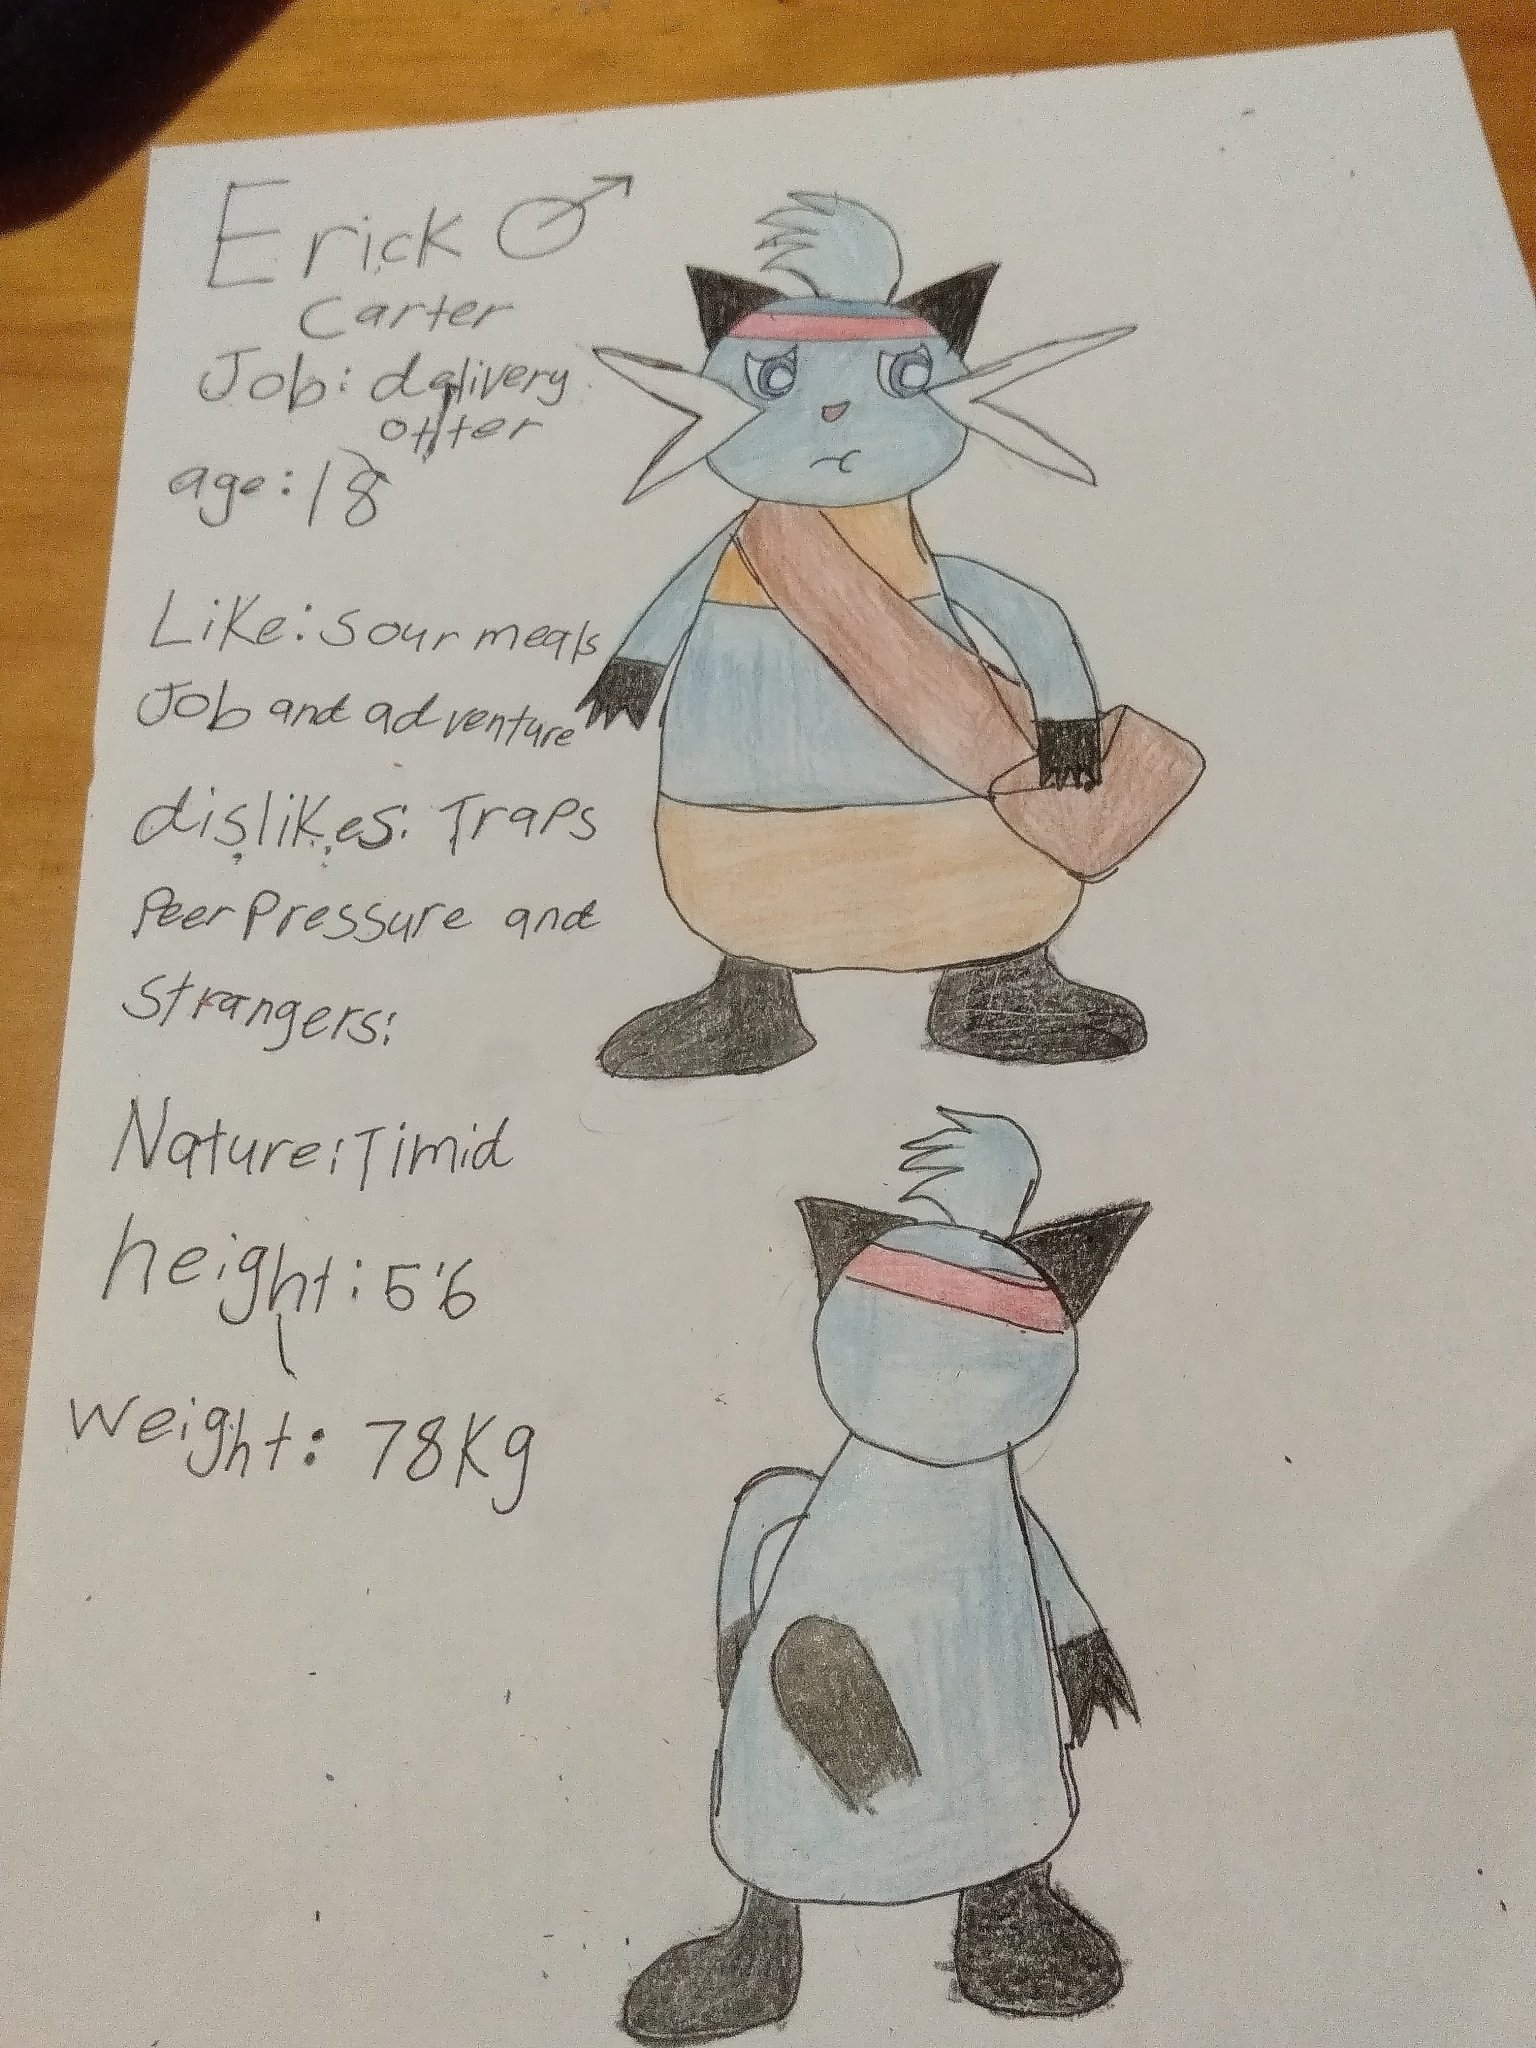 Erick ♂
Carter
Job: delivery
otter
age: 18
Like: sour meals
Job and adventure
dislikes: Traps
Peer Pressure and
strangers:
Nature: Timid
height: 5'6
weight: 78Kg